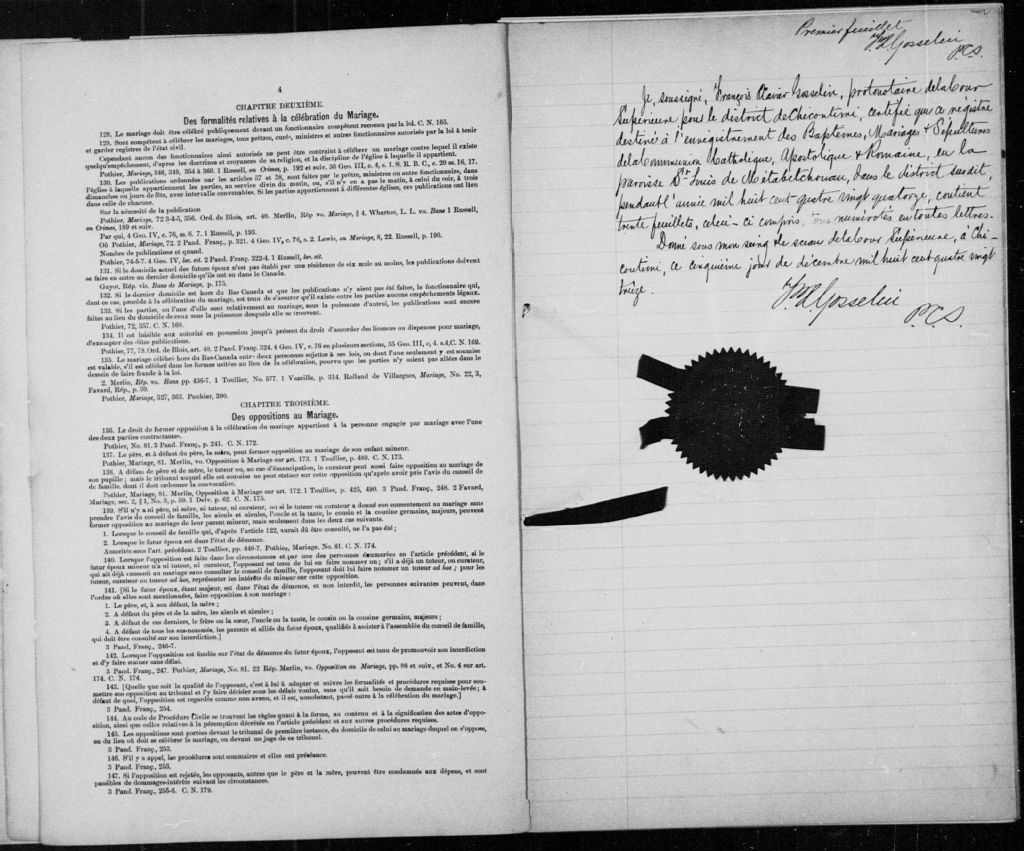 4
CHAPITRE DEUXIÈME.
Des formalités relatives à la célébration du Mariage.
128. Le mariage doit être célébré publiquement devant un fonctionnaire compétent reconnu par la loi. C. N. 165.
129. Sont compétents à célébrer les mariages, tous prêtres, curés, ministres et autres fonctionnaires autorisés par la loi à tenir
et garder registres de l'état civil.
Cependant aucun des fonctionnaires ainsi autorisés ne peut être contraint à célébrer un mariage contre lequel il existe
quelqu'empêchement, d'après les doctrines et croyances de sa religion, et la discipline de l'église à laquelle il appartient.
Pothier, Mariage, 346, 349, 354 à 360. 1 Russell, on Crimes, p. 192 et suiv. 36 Geo. III, c. 4, s. 1. S. R. B. C., c. 20 ss. 16, 17.
130. Les publications ordonnées par les articles 57 et 58, sont faites par le prêtre, ministre ou autre fonctionnaire, dans
l'église à laquelle appartiennent les parties, au service divin du matin, ou, s'il n'y en a pas le matin, à celui du soir, à trois
dimanches ou jours de fête, avec intervalle convenables. Si les parties appartiennent à différentes églises, ces publications ont lieu
dans celle de chacune.
Sur la nécessité de la publication
Pothier, Mariage, 72 3-4-5, 356. Ord. de Blois, art. 40. Merlin, Rép vo. Mariage, § 4. Wharton, L. L. vo. Bans 1 Russell,
on Crimes, 189 et suiv.
Par qui, 4 Geo. IV, c. 76, ss. 6. 7. 1 Russell, p. 193.
Où Pothier, Mariage, 72. 2 Pand. Franç., p. 321. 4 Geo. IV, c. 76, s. 2. Lewis, on Mariage, 8, 22. Russell, p. 190.
Nombre de publications et quand.
Pothier, 74-5-7. 4 Geo. IV, loc. cit. 2 Pand. Franç. 322-4. 1 Russell, loc. cit.
131. Si le domicile actuel des futurs époux n'est pas établi par une résidence de six mois au moins, les publications doivent
se faire en outre au dernier domicile qu'ils ont eu dans le Canada.
Guyot, Rép. vis. Bans de Mariage, p. 175.
132. Si le dernier domicile est hors du Bas Canada et que les publications n'y aient pas été faites, le fonctionnaire qui,
dans ce cas, procède à la célébration du mariage, est tenu de s'assurer qu'il existe entre les parties aucuns empêchements légaux.
133. Si les parties, ou l'une d'elle sont relativement au mariage, sous la puissance d'autrui, les publications sont encore
faites au lieu du domicile de ceux sous la puissance desquels elle se trouvent.
Pothier, 72, 357. C. N. 168.
134. Il est loisible aux autorité en possession jusqu'à présent du droit d'accorder des licences ou dispenses pour mariage,
d'exempter des dites publications.
Pothier, 77, 78. Ord. de Blois, art. 40. 2 Pand. Franç. 324. 4 Geo. IV, c. 76 en plusieurs sections, 35 Geo. III, c, 4. s.4,C. N. 169.
135. Le mariage célébré hors du Bas-Canada entre deux personnes sujettes à ses lois, ou dont l'une seulement y est soumise
est valable, s'il est célébré dans les formes usitées au lieu de la célébration, pourvu que les parties n'y soient pas allées dans le
dessein de faire fraude à la loi.
2. Merlin, Rép. vo. Bans pp. 456-7. 1 Toullier, No. 577. 1 Vazeille, p. 314. Rolland de Villargues, Mariage, No. 22, 3,
Favard, Rép., p. 30.
Pothier, Mariage, 327, 363. Pouhier, 390.
CHAPITRE TROISIÈME.
Des oppositions au Mariage.
136. Le droit de former opposition à la célébration du mariage appartient à la personne engagée par mariage avec l'une
des deux parties contractantes.
Pothier, No. 81. 3 Pand. Franç., p. 241. C. N. 172.
137. Le père, et à défaut du père, la mère, peut former opposition au mariage de son enfant mineur.
Pothier, Mariage, 81. Merlin, vo. Opposition à Mariage sur art. 173. 1 Toullier, p. 489. C. N. 173.
138. A défaut de père et de mère, le tuteur ou, au cas d'émancipation, le curateur peut aussi faire opposition au mariage de
son pupille ; mais le tribunal auquel elle est soumise ne peut statuer sur cette opposition qu'après avoir pris l'avis du conseil de
famille, dont il doit ordonner la convocation.
Pothier, Mariage, 81. Merlin, Opposition à Mariage sur art. 172. 1 Toullier, p. 425, 490. 3 Pand. Franç., 248. 2 Favard,
Mariage, sec. 2, § 1, No. 3, p. 59. 1 Delv. p. 62. C. N. 175.
139. S'il n'y a ni père, ni mère, ni tuteur, ni curateur, ou si le tuteur ou curateur a donné son consentement au mariage sans
prendre l'avis du conseil de famille, les aïeuls et aïeules, l'oncle et la tante, le cousin et la cousine germains, majeurs, peuvent
former opposition au mariage de leur parent mineur, mais seulement dans les deux cas suivants.
1. Lorsque le conseil de famille qui, d'après l'article 122, aurait dû être consulté, ne l'a pas été ;
2. Lorsque le futur époux est dans l'état de démence.
Autorités sous l'art. précédent. 2 Toullier, pp. 446-7. Pothier, Mariage, No. 81. C. N. 174.
140. Lorsque l'opposition est faite dans les circonstances et par une des personnes énumérées en l'article précédent, si le
futur époux mineur n'a ni tuteur, ni curateur, l'opposant est tenu de lui en faire nommer un ; s'il a déjà un tuteur, ou curateur,
qui ait déjà consenti au mariage sans consulter le conseil de famille, l'opposant doit lui faire nommer un tuteur ad hoc ; pour les
tuteur, curateur ou tuteur ad hoc, représenter les intérêts du mineur sur cette opposition.
141. [Si le futur époux, étant majeur, est dans l'état de démence, et non interdit, les personnes suivantes peuvent, dans
l'ordre où elles sont mentionnées, faire opposition à son mariage :
1. Le père, et, à son défaut, la mère ;
2. A défaut du père et de la mère, les aïeuls et aïeules ;
3. A défaut de ces derniers, le frère ou la sœur, l'oncle ou la tante, le cousin ou la cousine germains, majeurs ;
4. A défaut de tous les sus-nommés, les parents et alliés du futur époux, qualifiés à assister à l'assemblée du conseil de famille,
qui doit être consulté sur son interdiction.]
3 Pand, Franç., 246-7.
142. Lorsque l'opposition est fondée sur l'état de démence du futur époux, l'opposant est tenu de promouvoir son interdiction
et d'y faire statuer sans délai.
3 Pand. Franç., 247. Pothier, Mariage, No. 81. 22 Rép. Merlin, vo. Opposition au Mariage, pp. 88 et suiv., et No. 4 sur art.
174. C. N. 174.
143. [Quelle que soit la qualité de l'opposant, c'est à lui à adopter et suivre les formalités et procédures requises pour sou-
mettre son opposition au tribunal et l'y faire décider sous les délais voulus, sans qu'il soit besoin de demande en main-levée ; à
défaut de quoi, l'opposition est regardée comme non avenu, et il est, nonobstant, passé outre à la célébration du mariage.]
3 Pand. Franç., 254.
144. Au code de Procédure Civile se trouvent les règles quant à la forme, au contenu et à la signification des actes d'oppo-
sition, ainsi que celles relatives à la péremption décrétée en l'article précédent et aux autres procédures requises.
145. Les oppositions sont portées devant le tribunal de première instance, du domicile de celui au mariage duquel on s'oppose,
ou du lieu où doit se célébrer le mariage, ou devant un juge de ce tribunal.
3 Pand. Franç., 253.
146. S'il y a appel, les procédures sont sommaires et elles ont préséance.
3 Pand. Franç., 253.
147. Si l'opposition est rejetée, les opposants, autres que le père et la mère, peuvent être condamnés aux dépens, et sont
passibles de dommages-intérêts suivant les circonstances.
3 Pand. Franç., 255-6. C. N. 179.
Premier feuillet
F.X. Gosselin
P.C.S.
Je, soussigné, François Xavier Gosselin, protonotaire de la Cour
Supérieure pour le district de Chicoutimi, certifie que ce registre
destiné à l'enregistrement des Baptêmes, Mariages & Sépultures
de la Communion Catholique, Apostolique & Romaine, en la
paroisse St Louis de Métabetchouan, dans le district susdit,
pendant l'année mil huit cent quatre vingt quatorze, contient
trente feuillets, celui-ci compris, tous numérotés en toutes lettres.
Donné sous mon seing & sceau de la Cour Supérieure, à Chi-
coutimi, ce cinquième jour de décembre mil huit cent quatre vingt
treize.
F.X. Gosselin
P.C.S.